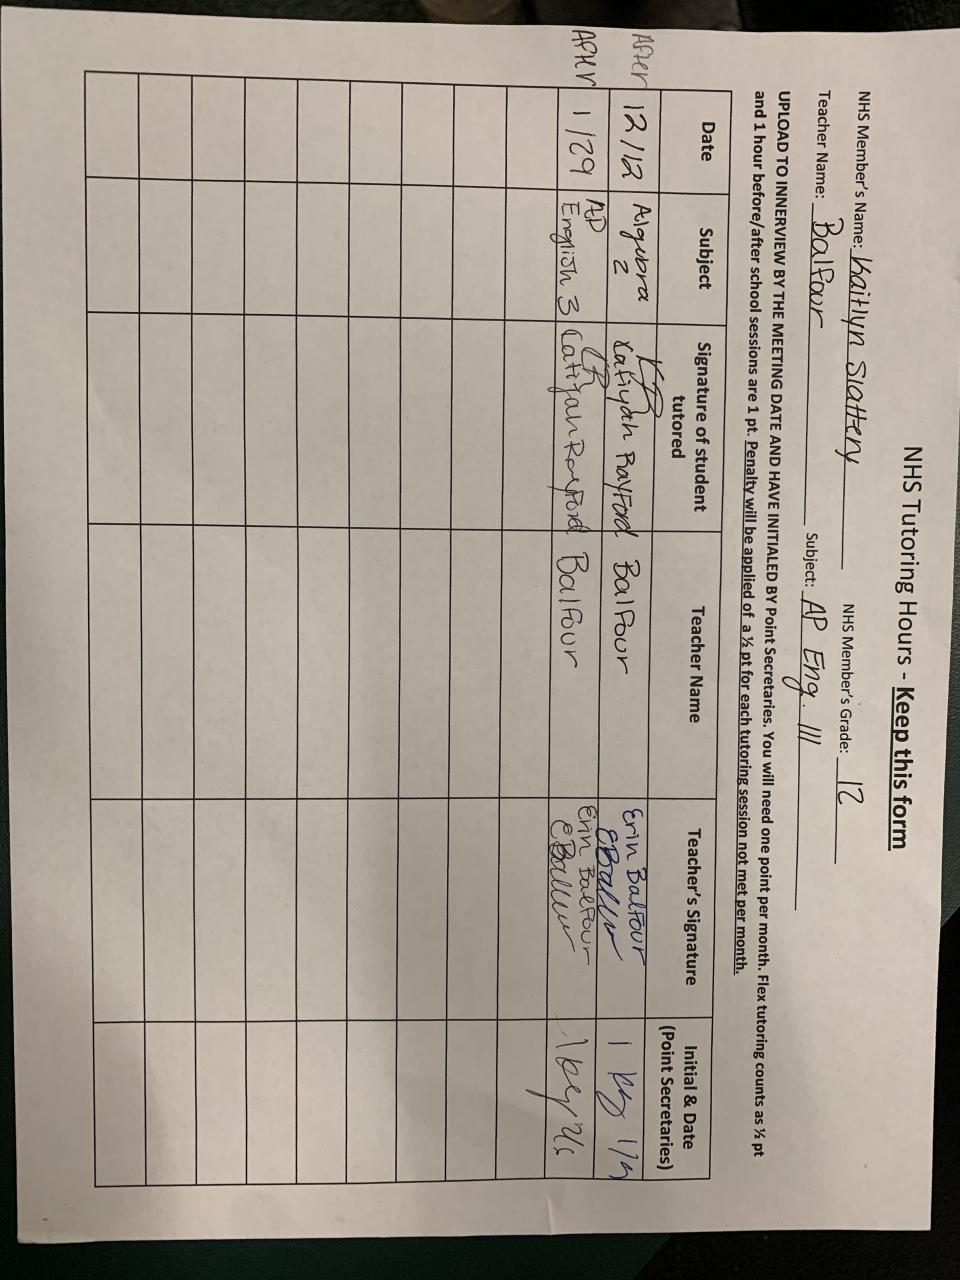 NHS Tutoring Hours - Keep this form
NHS Member's Name: Kaitlyn Slattery NHS Member's Grade: 12
Teacher Name: Balfour Subject: AP Eng. III
UPLOAD TO INNERVIEW BY THE MEETING DATE AND HAVE INITIALED BY Point Secretaries. You will need one point per month. Flex tutoring counts as ½ pt
and 1 hour before/after school sessions are 1 pt. Penalty will be applied of a ½ pt for each tutoring session not met per month.
Date Subject Signature of student tutored Teacher Name Teacher's Signature Initial & Date (Point Secretaries)
After 12/12 Algebra 2 KR Katiyah Rayford Balfour Erin Balfour EBalfour 1
After 1/29 AP English 3 CR Catiyah Rayford Balfour Erin Balfour EBalfour 1